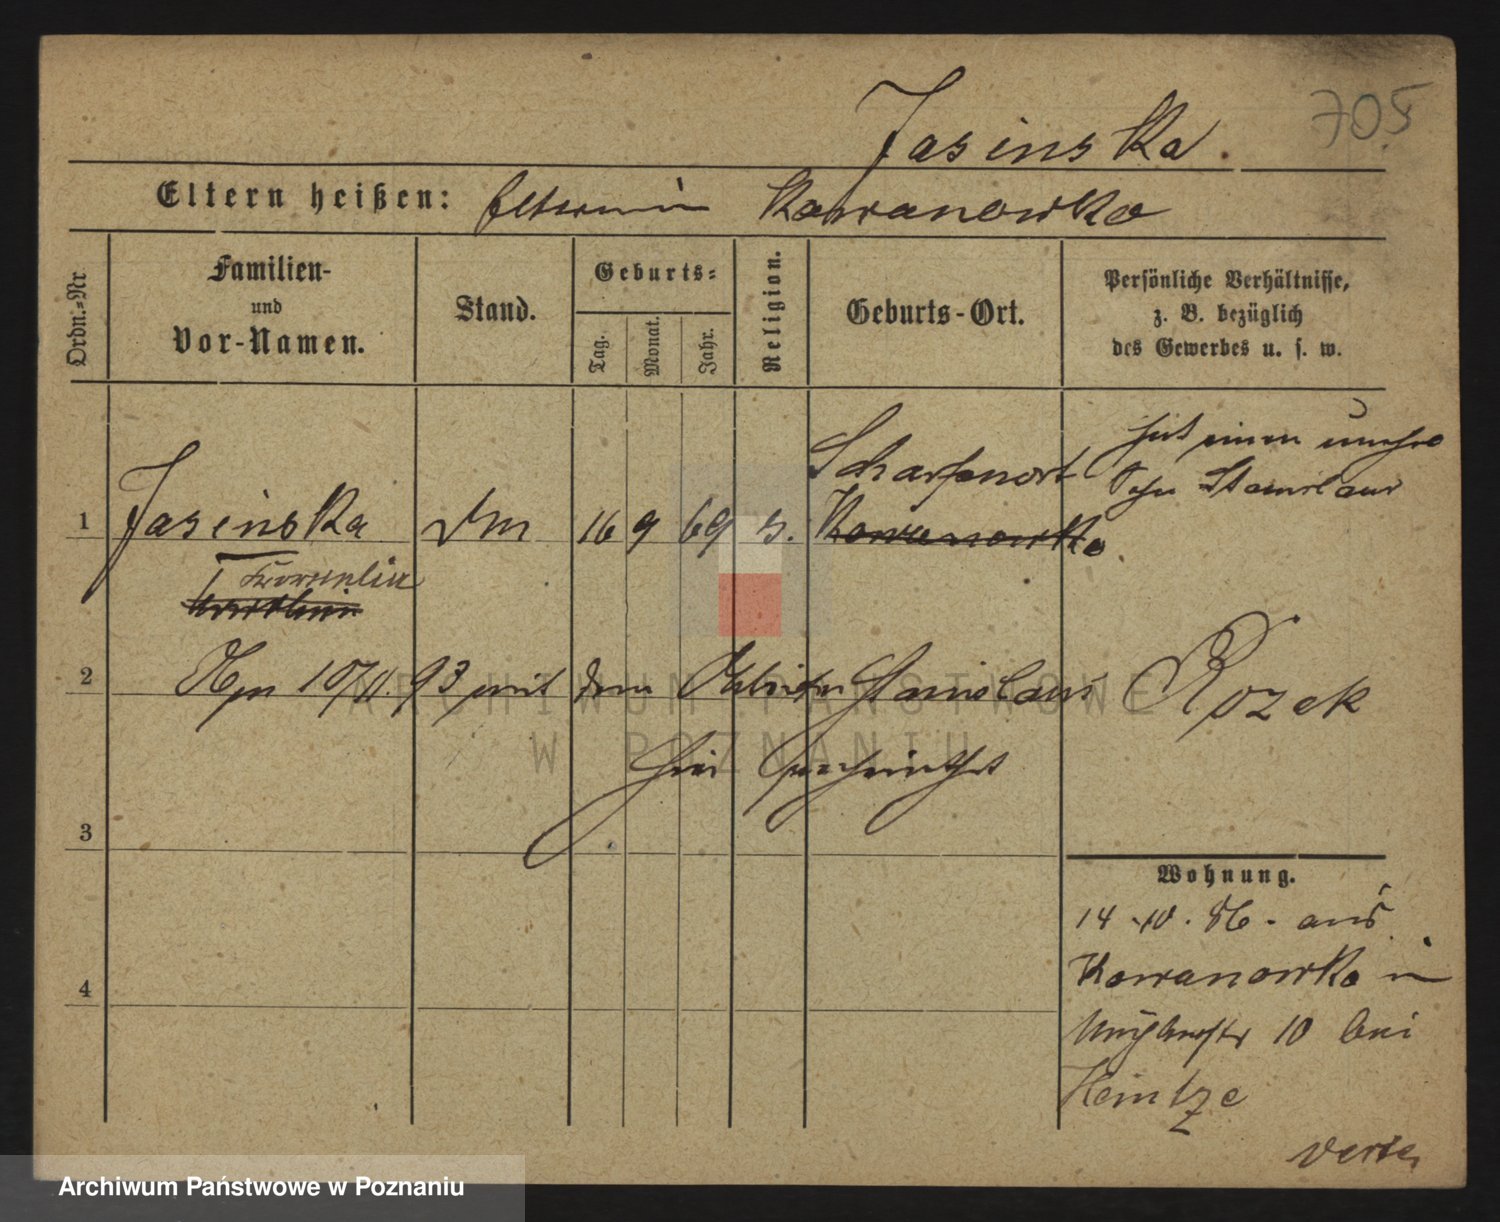 705
Jasinska.
Eltern heißen: Eltern in Kowanowko
Ordn.-Nr.
Familien-
und
Vor-Namen.
Stand.
Geburts-
Tag.
Monat.
Jahr.
Religion.
Geburts-Ort.
Persönliche Verhältnisse,
z. B. bezüglich
des Gewerbes u. s. w.
hat einen unehe
Scharfenort
Sohn Stanislaus
1 Jasinska 16 9 69 Kowanowko
2 10/11.93 mit dem Arbeiter Stanislaus Rozek
hier verheirathet
3
Wohnung.
14.10.86. aus
Kowanowko in
4
10 bei
Heintze
verte
ARCHIWUM PAŃSTWOWE
W POZNANIU
Archiwum Państwowe w Poznaniu